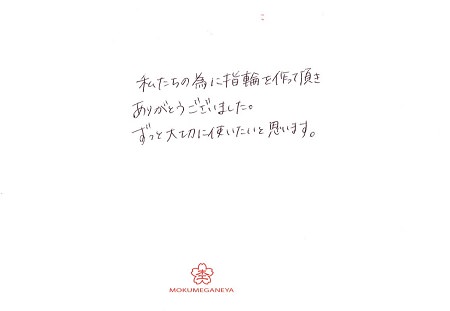 私たちの為に指輪を作って頂き
ありがとうございました。
ずっと大切に使いたいと思います。
MOKUMEGANEYA